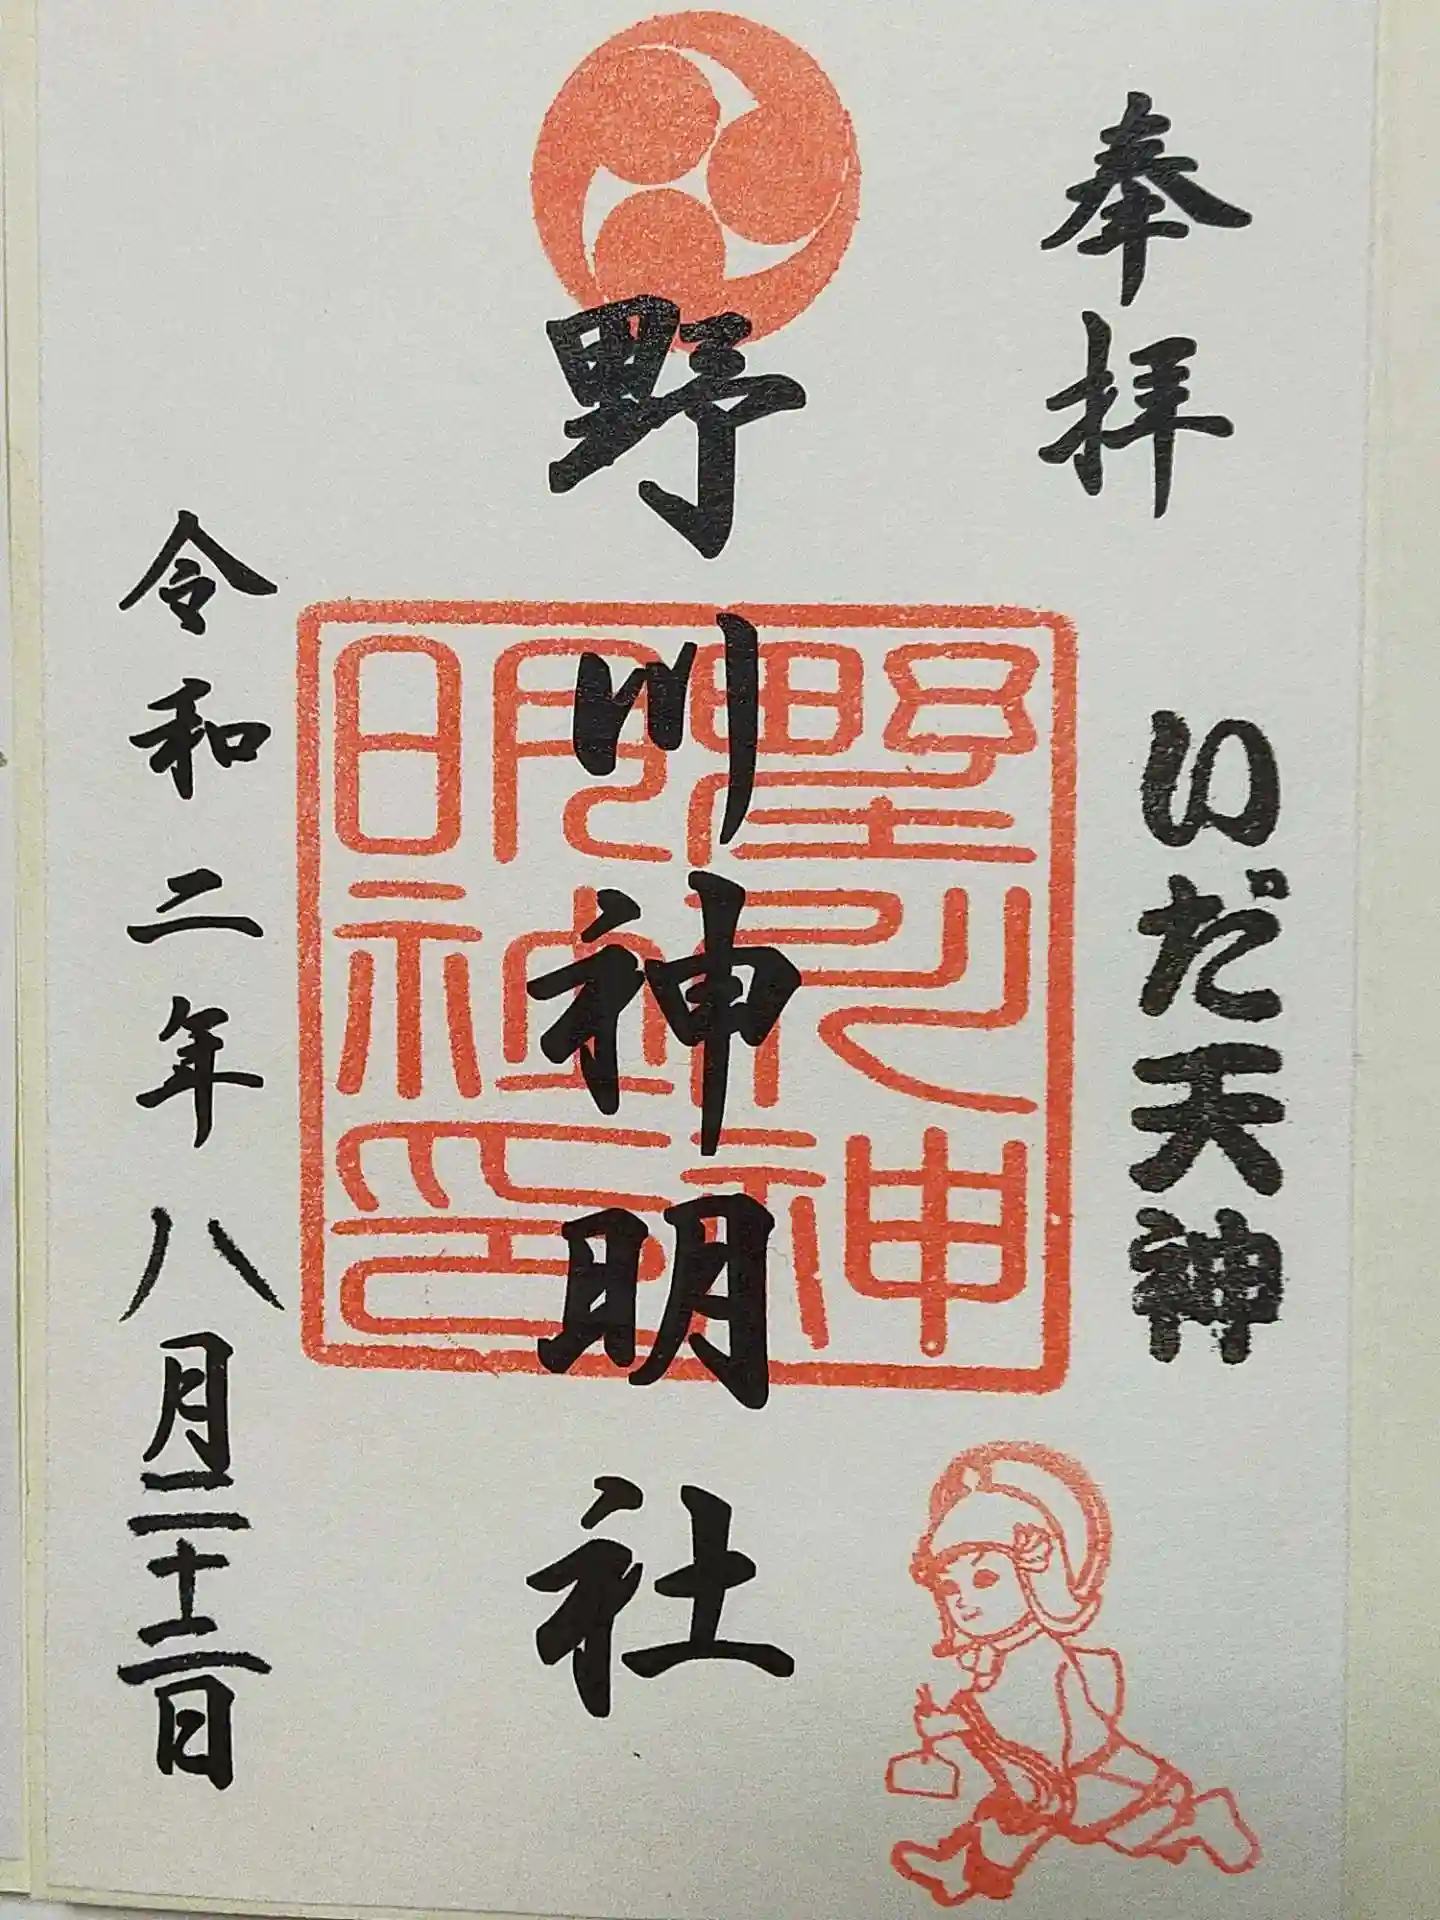 奉拝
いだ天神
野川神明社
野川神
明社印
令和二年八月二十二日